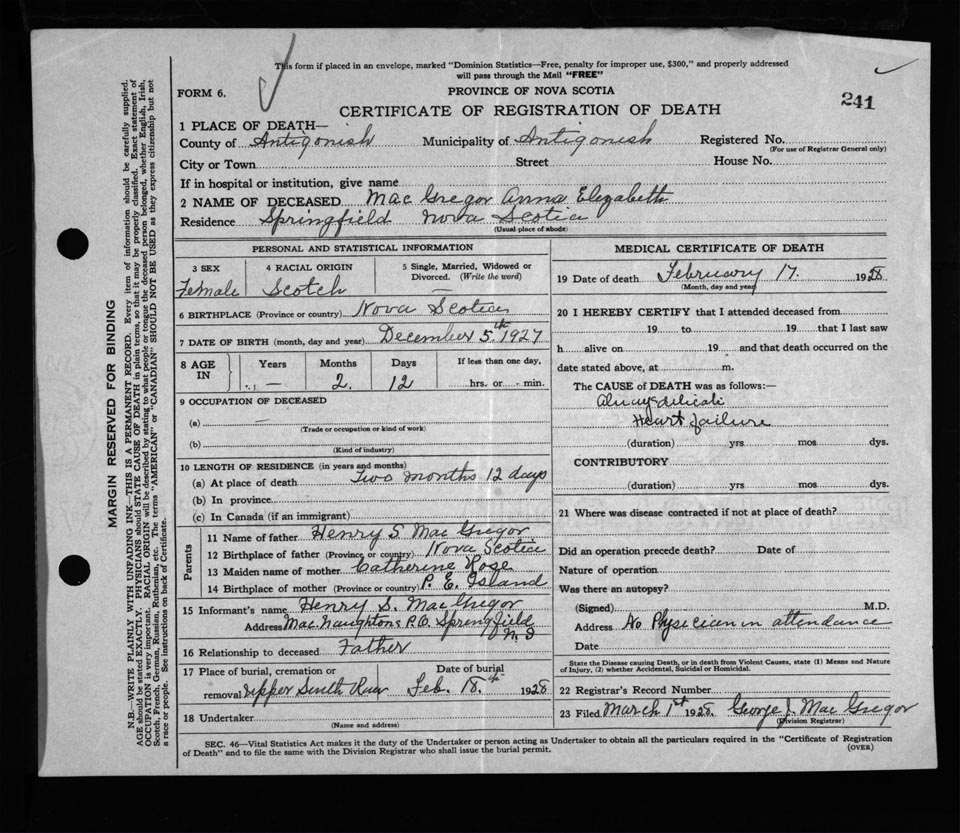 This form if placed in an envelope, marked "Dominion Statistics—Free, penalty for improper use, $300," and properly addressed
will pass through the Mail "FREE"
FORM 6.
PROVINCE OF NOVA SCOTIA
241
CERTIFICATE OF REGISTRATION OF DEATH
1 PLACE OF DEATH—
County of Antigonish Municipality of Antigonish Registered No.
(For use of Registrar General only)
City or Town Street House No.
If in hospital or institution, give name
2 NAME OF DECEASED Mac Gregor Anna Elizabeth
Residence Springfield Nova Scotia
(Usual place of abode)
PERSONAL AND STATISTICAL INFORMATION
3 SEX 4 RACIAL ORIGIN 5 Single, Married, Widowed or
Divorced. (Write the word)
Female Scotch —
6 BIRTHPLACE (Province or country) Nova Scotia
7 DATE OF BIRTH (month, day and year) December 5th 1927
8 AGE IN Years Months Days If less than one day,
— 2 12 hrs. or min.
9 OCCUPATION OF DECEASED
(a) —
(Trade or occupation or kind of work)
(b)
(Kind of industry)
10 LENGTH OF RESIDENCE (in years and months)
(a) At place of death Two months 12 days
(b) In province
(c) In Canada (if an immigrant)
Parents
11 Name of father Henry S. Mac Gregor
12 Birthplace of father (Province or country) Nova Scotia
13 Maiden name of mother Catherine Rose
14 Birthplace of mother (Province or country) P. E. Island
15 Informant's name Henry S. Mac Gregor
Address Mac Naughtons P.O. Springfield
N. S
16 Relationship to deceased Father
17 Place of burial, cremation or Date of burial
removal Upper South River Feb. 18th 1928
18 Undertaker
(Name and address)
MEDICAL CERTIFICATE OF DEATH
19 Date of death February 17. 1928
(Month, day and year)
20 I HEREBY CERTIFY that I attended deceased from
19 to 19 that I last saw
h alive on 19 and that death occurred on the
date stated above, at m.
The CAUSE of DEATH was as follows:—
Always delicate
Heart failure
(duration) yrs mos dys.
CONTRIBUTORY
(duration) yrs mos dys.
21 Where was disease contracted if not at place of death?
Did an operation precede death? Date of
Nature of operation
Was there an autopsy?
(Signed) M.D.
Address No Physician in attendance
Date
State the Disease causing Death, or in death from Violent Causes, state (1) Means and Nature
of Injury, (2) whether Accidental, Suicidal or Homicidal.
22 Registrar's Record Number
23 Filed March 1st 1928. George J. Mac Gregor
(Division Registrar)
SEC. 46—Vital Statistics Act makes it the duty of the Undertaker or person acting as Undertaker to obtain all the particulars required in the "Certificate of Registration
of Death" and to file the same with the Division Registrar who shall issue the burial permit.
(OVER)
MARGIN RESERVED FOR BINDING
N.B.—WRITE PLAINLY, WITH UNFADING INK—THIS IS A PERMANENT RECORD. Every item of information should be carefully supplied.
AGE should be stated EXACTLY. PHYSICIANS should STATE CAUSE OF DEATH in plain terms, so that it may be properly classified. Exact statement of
OCCUPATION is very important. RACIAL ORIGIN will be described by stating to what people or tongue the deceased person belonged, whether English, Irish,
Scotch, French, German, Russian, Ruthenian, etc. The terms "AMERICAN" or "CANADIAN" SHOULD NOT BE USED as they express citizenship but not
a race or people. See instructions on back of Certificate.